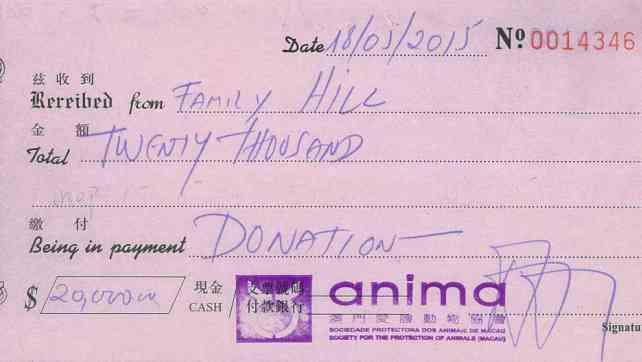 Date 18/05/2015 Nº 0014346
茲收到
Rereibed from FAMILY HILL
金額
Total TWENTY THOUSAND
繳付
Being in payment DONATION
$ 20,000.00 現金 CASH / 付款銀行
anima
澳門愛護動物協會
SOCIEDADE PROTECTORA DOS ANIMAIS DE MACAU
SOCIETY FOR THE PROTECTION OF ANIMALS (MACAU)
Signatu